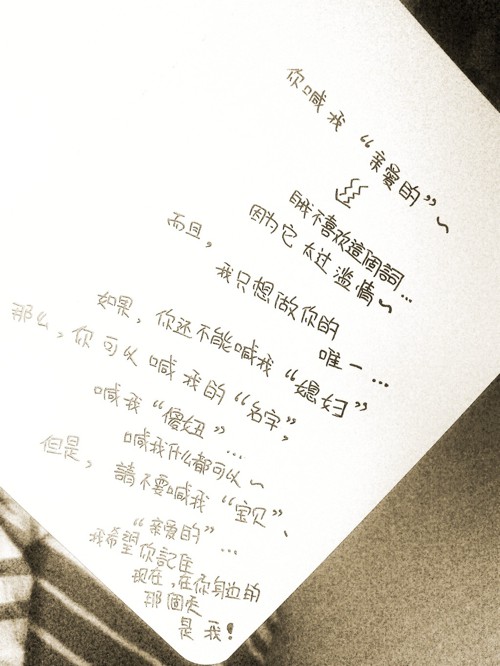 你喊我“亲爱的”~
我不喜欢這個詞…
因为它太过滥情~
而且,
我只想做你的
唯一…
如果,你还不能喊我“媳妇”
那么,你可以喊我的“名字”,
喊我“傻妞”…
喊我什么都可以~
但是,請不要喊我“宝贝”、
“亲爱的”…
我希望你記住
现在,在你身边的
那個
是我!